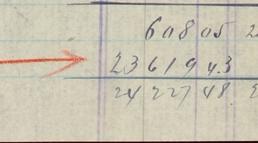 60805
2361943
2422748